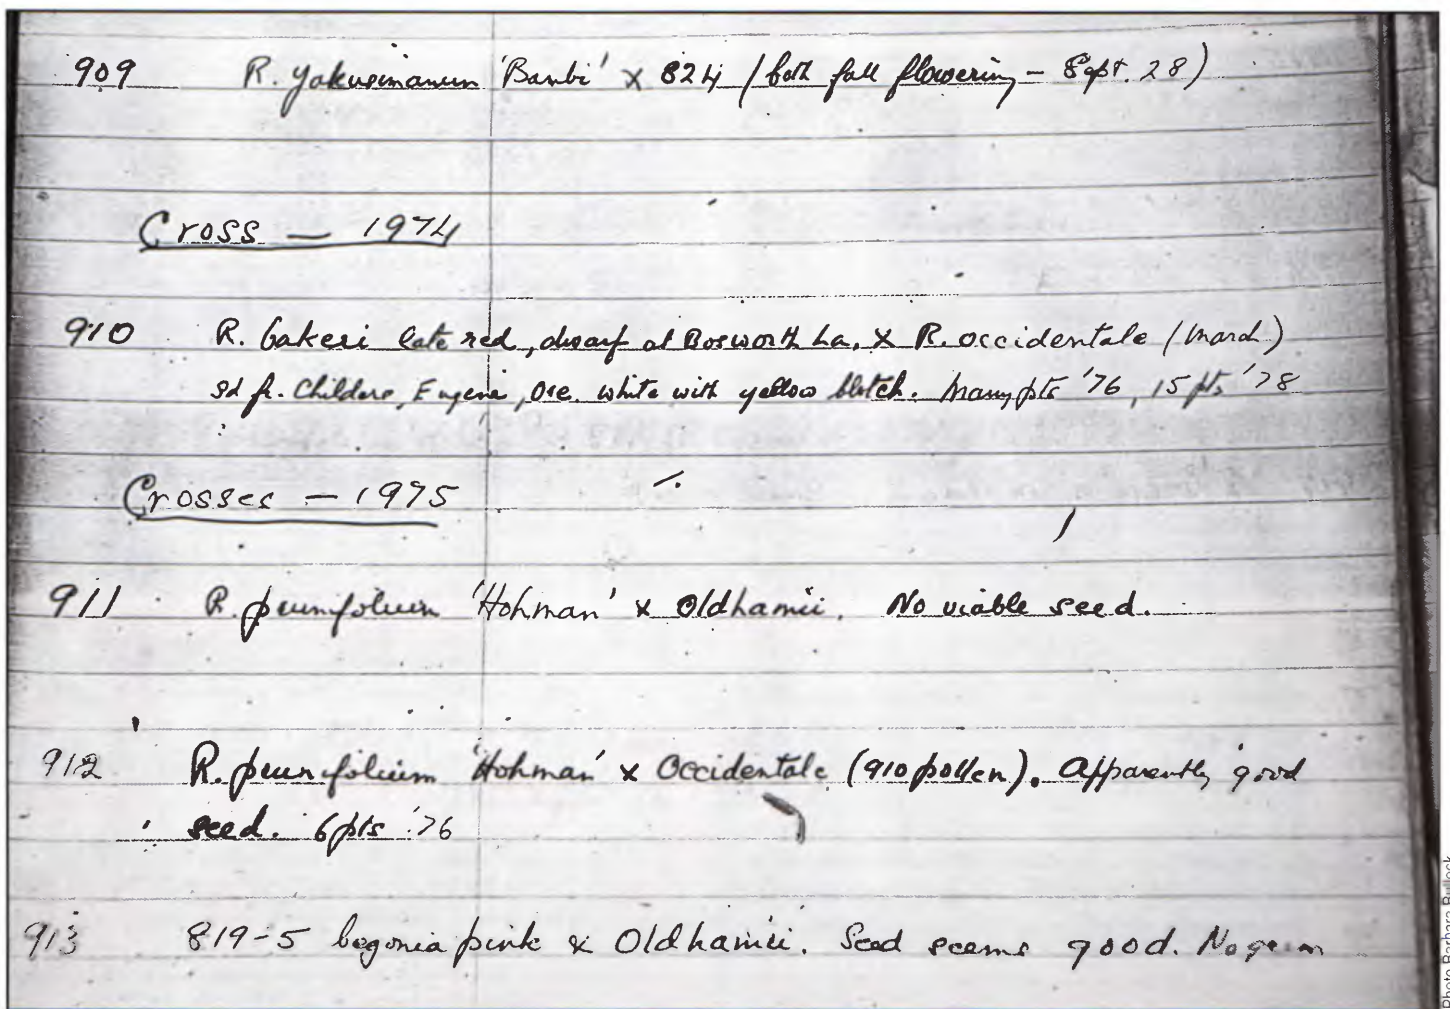 909 R. yakusimanum 'Bambi' x 824 (both fall flowering - Sept. 28)
Cross — 1974
910 R. bakeri late red, dwarf at Bosworth La. x R. occidentale (March)
sd fr. Childers, Eugene, Ore. white with yellow blotch. Many pts '76, 15 pts '78
Crosses — 1975
911 R. prunifolium 'Hohman' x Oldhamii. No viable seed.
912 R. prunifolium 'Hohman' x Occidentale (910 pollen). Apparently good
seed. 6 pts '76
913 819-5 begonia pink x Oldhamii. Seed seems good. No germ
Photo Barbara Bullock